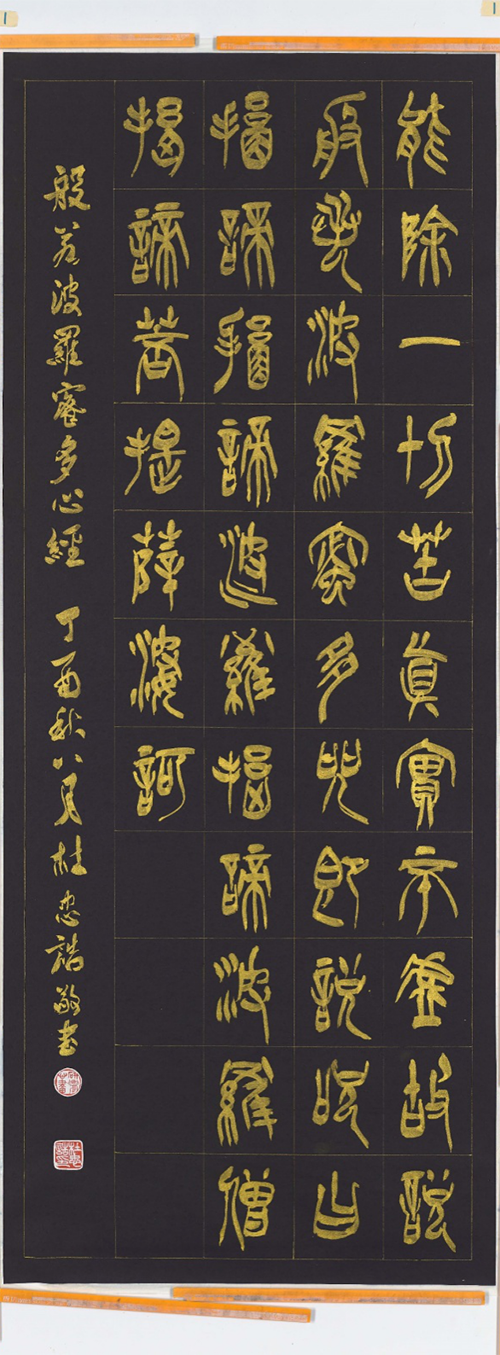 能除一切苦真實不虛故說
般若波羅蜜多咒即說咒曰
揭諦揭諦波羅揭諦波羅僧
揭諦菩提薩婆訶
般若波羅蜜多心經 丁酉秋八月杜忠誥敬書